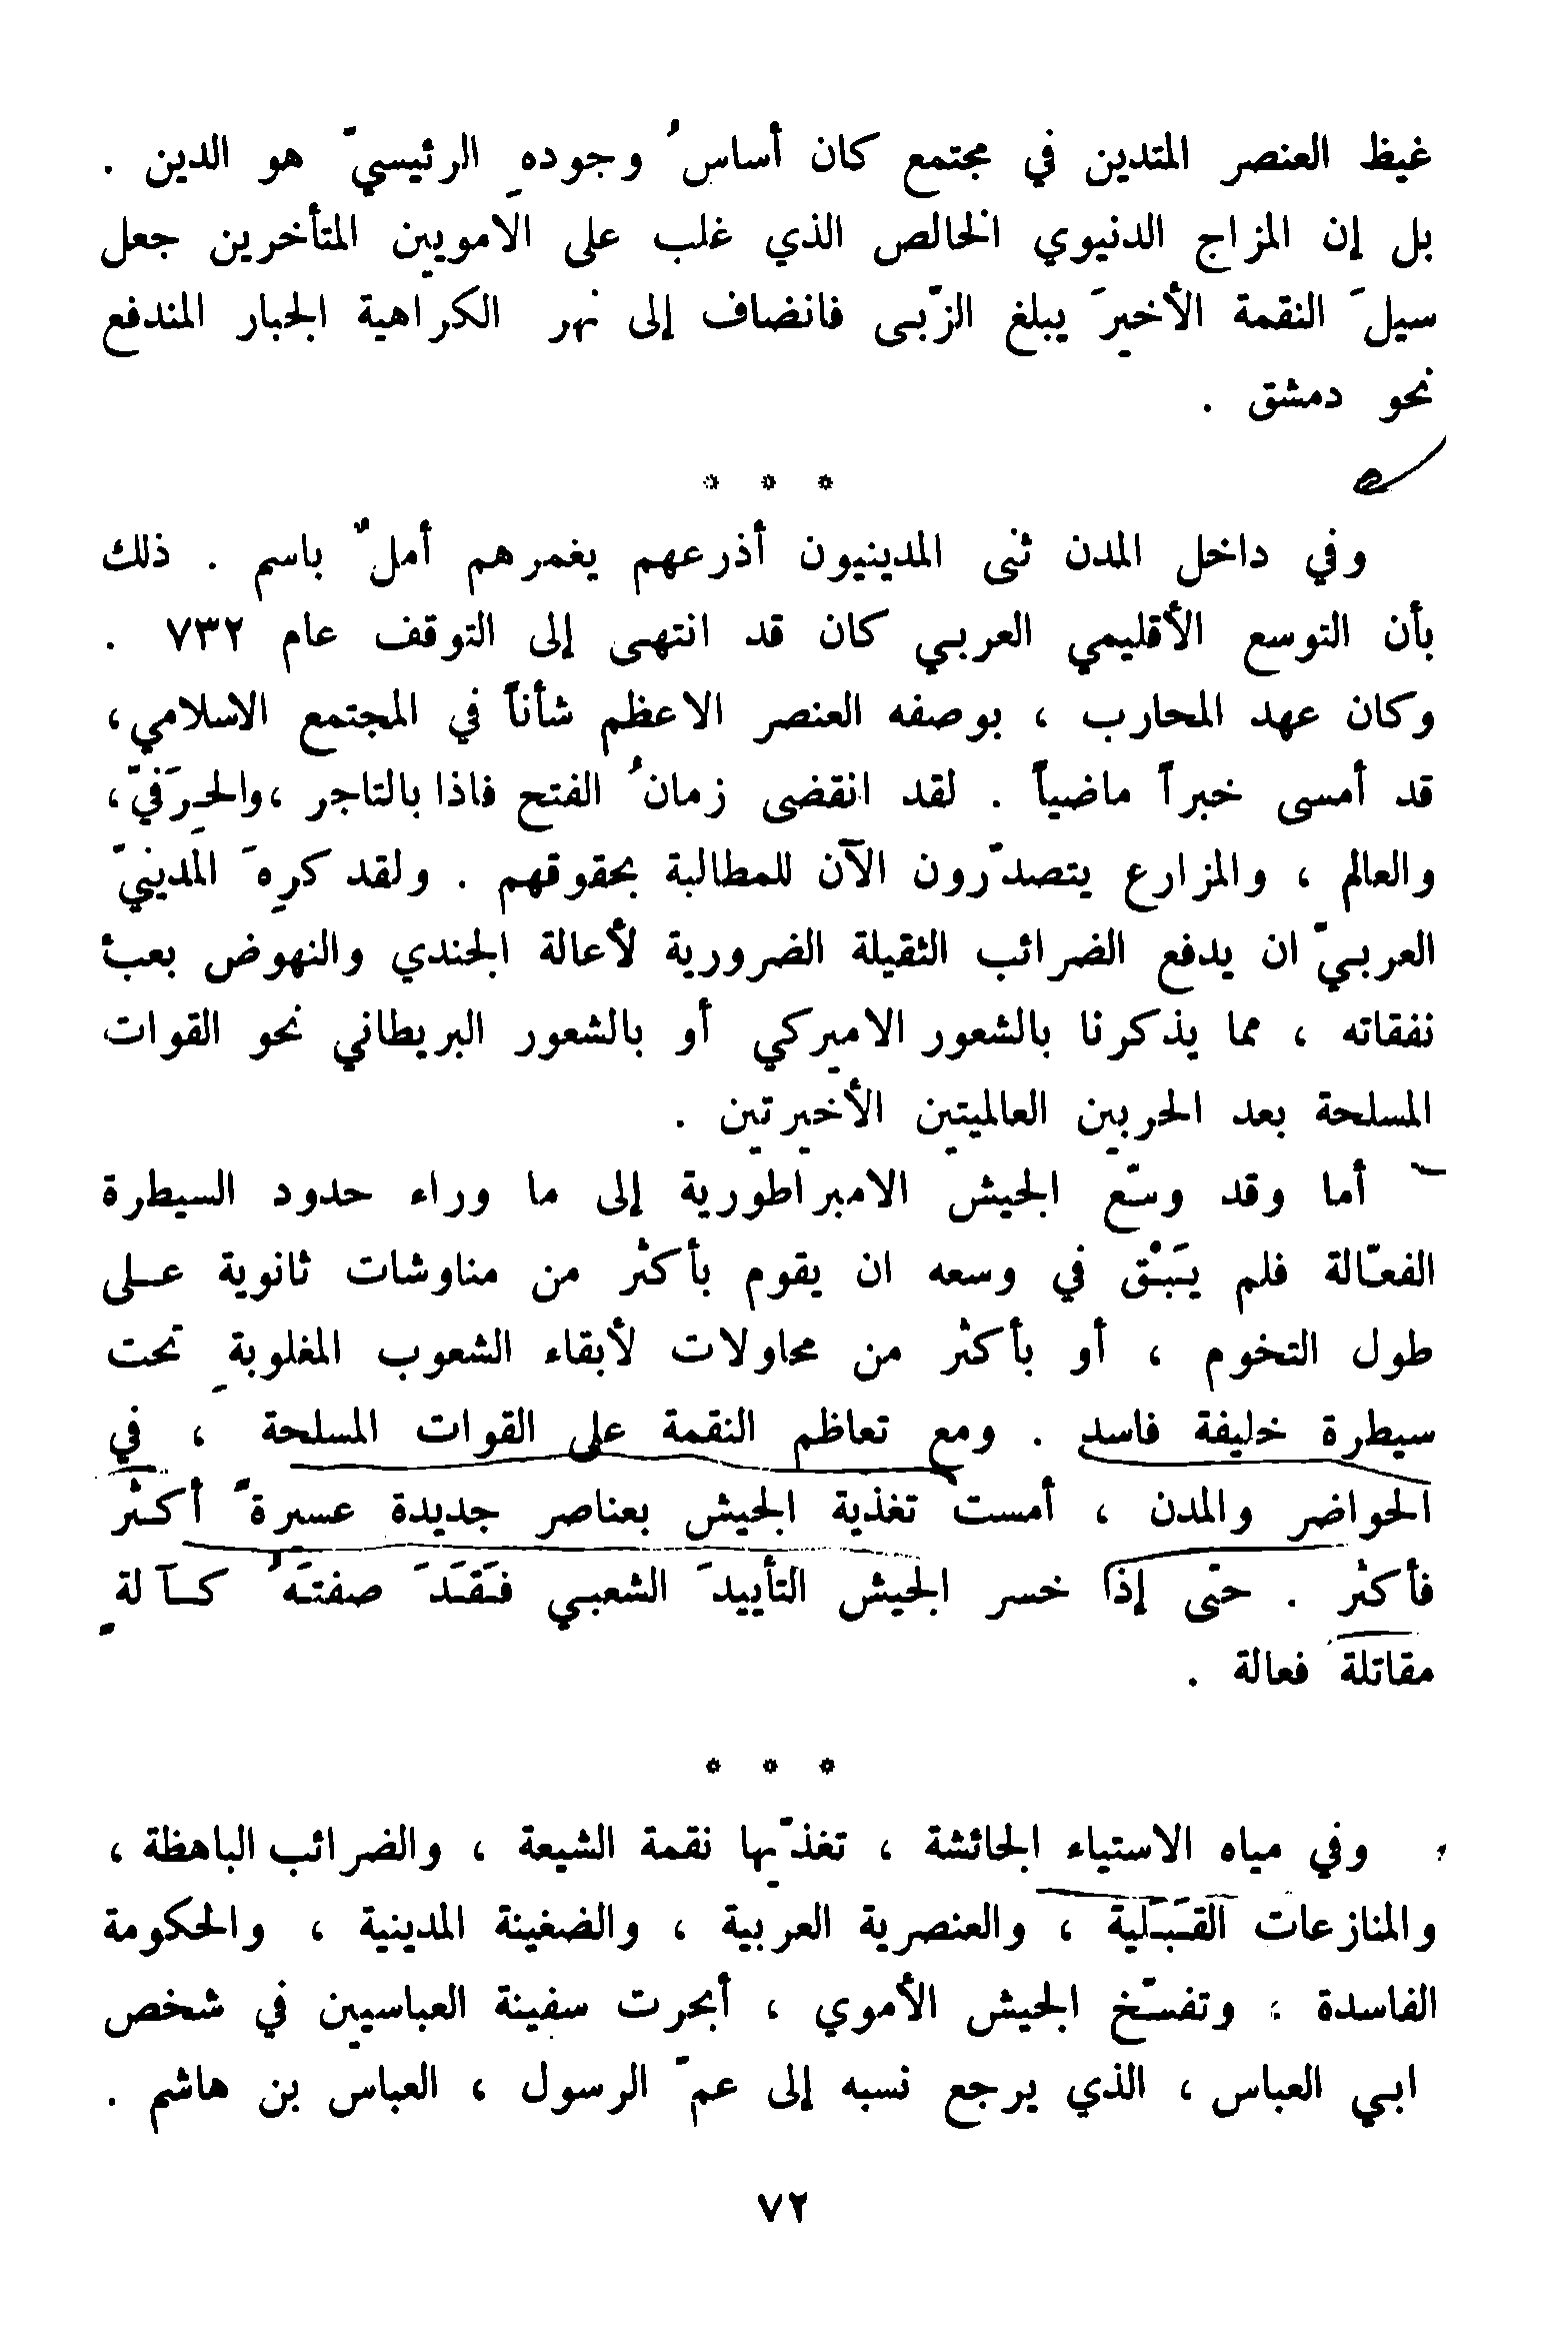 غيظ العنصر المتدين في مجتمع كان أساسُ وجودهِ الرئيسيّ هو الدين .
بل إن المزاج الدنيوي الخالص الذي غلب على الامويين المتأخرين جعل
سيلَ النقمة الأخيرَ يبلغ الزّبى فانضاف إلى نهر الكراهية الجبار المندفع
نحو دمشق .
* * *
وفي داخل المدن ثنى المدينيون أذرعهم يغمرهم أملٌ باسم . ذلك
بأن التوسع الأقليمي العربي كان قد انتهى إلى التوقف عام ٧٣٢ .
وكان عهد المحارب ، بوصفه العنصر الاعظم شأناً في المجتمع الاسلامي ،
قد أمسى خبراً ماضياً . لقد انقضى زمانُ الفتح فاذا بالتاجر ، والحِرَفيّ ،
والعالم ، والمزارع يتصدّرون الآن للمطالبة بحقوقهم . ولقد كرِهَ المَدينيّ
العربيّ ان يدفع الضرائب الثقيلة الضرورية لأعالة الجندي والنهوض بعبء
نفقاته ، مما يذكرنا بالشعور الاميركي أو بالشعور البريطاني نحو القوات
المسلحة بعد الحربين العالميتين الأخيرتين .
أما وقد وسّع الجيش الامبراطورية إلى ما وراء حدود السيطرة
الفعّالة فلم يَبْق في وسعه ان يقوم بأكثر من مناوشات ثانوية عـلى
طول التخوم ، أو بأكثر من محاولات لأبقاء الشعوب المغلوبةِ تحت
سيطرة خليفة فاسد . ومع تعاظم النقمة على القوات المسلحة ، في
الحواضر والمدن ، أمست تغذية الجيش بعناصر جديدة عسيرةً أكـثر
فأكثر . حتى إذا خسر الجيش التأييدَ الشعبي فَقَدَ صفتَهُ كـآلةٍ
مقاتلة فعالة .
* * *
وفي مياه الاستياء الجائشة ، تغذّيها نقمة الشيعة ، والضرائب الباهظة ،
والمنازعات القَبَلية ، والعنصرية العربية ، والضغينة المدينية ، والحكومة
الفاسدة ، وتفسّخ الجيش الأموي ، أبحرت سفينة العباسيين في شخص
ابي العباس ، الذي يرجع نسبه إلى عمّ الرسول ، العباس بن هاشم .
٧٢